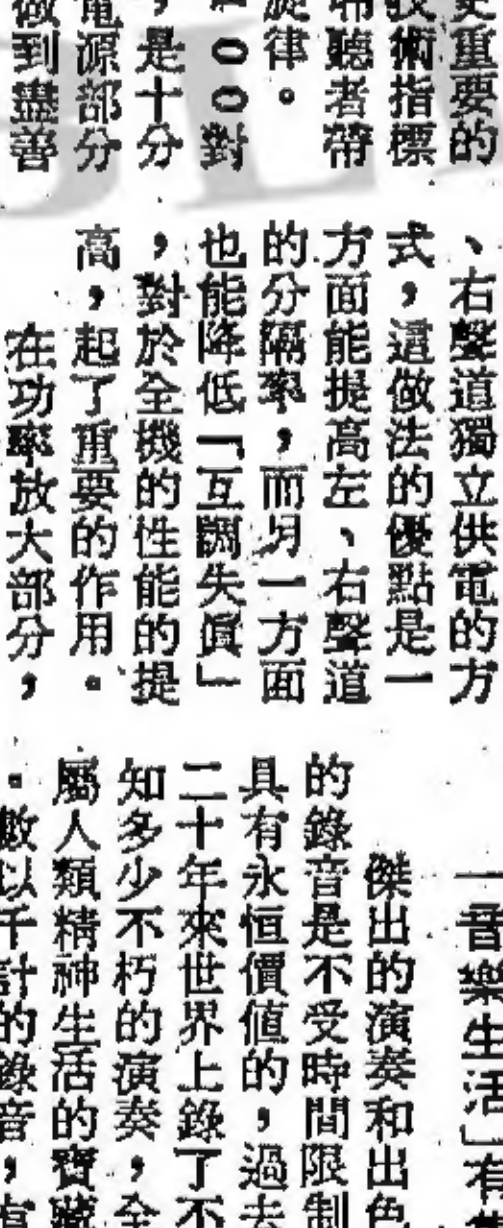 更重要的
技術指標
聽者帶
旋律。
００對
，是十分
電源部分
做到盡善
、右聲道獨立供電的方
式，這做法的優點是一
方面能提高左、右聲道
的分隔率，而另一方面
也能降低「互調失真」
，對於全機的性能的提
高，起了重要的作用。
在功率放大部分，
「音樂生活」有
傑出的演奏和出色
的錄音是不受時間限制
具有永恒價值的，過去
二十年來世界上錄了不
知多少不朽的演奏，全
屬人類精神生活的寶藏
。數以千計的錄音，有